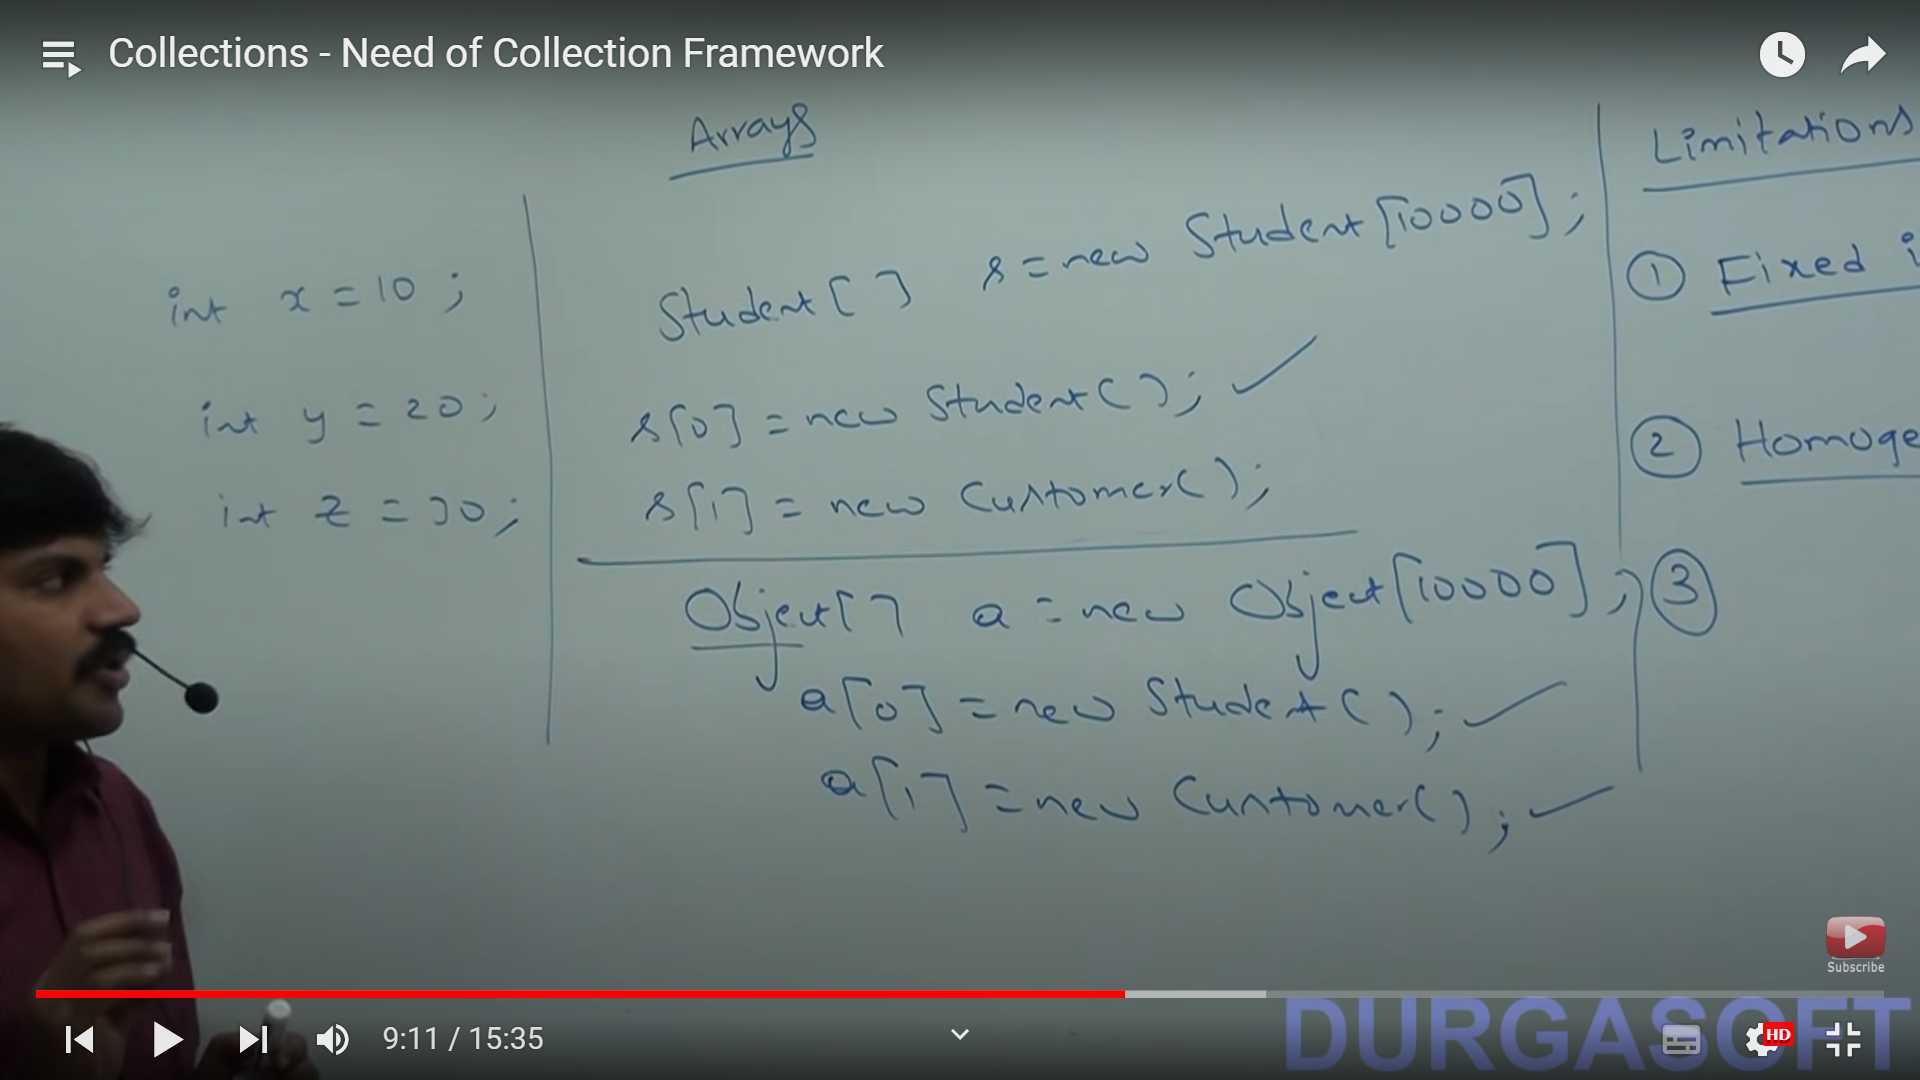 Collections - Need of Collection Framework
Arrays
int x = 10 ;
int y = 20 ;
int z = 30 ;
Student [ ] s = new Student [10000] ;
s[0] = new Student ( ) ;
s[1] = new Customer ( ) ;
Object [ ] a = new Object [10000] ;
a[0] = new Student ( ) ;
a[1] = new Customer ( ) ;
Limitations
1 Fixed i
2 Homoge
3
Subscribe
9:11 / 15:35
HD
DURGASOFT